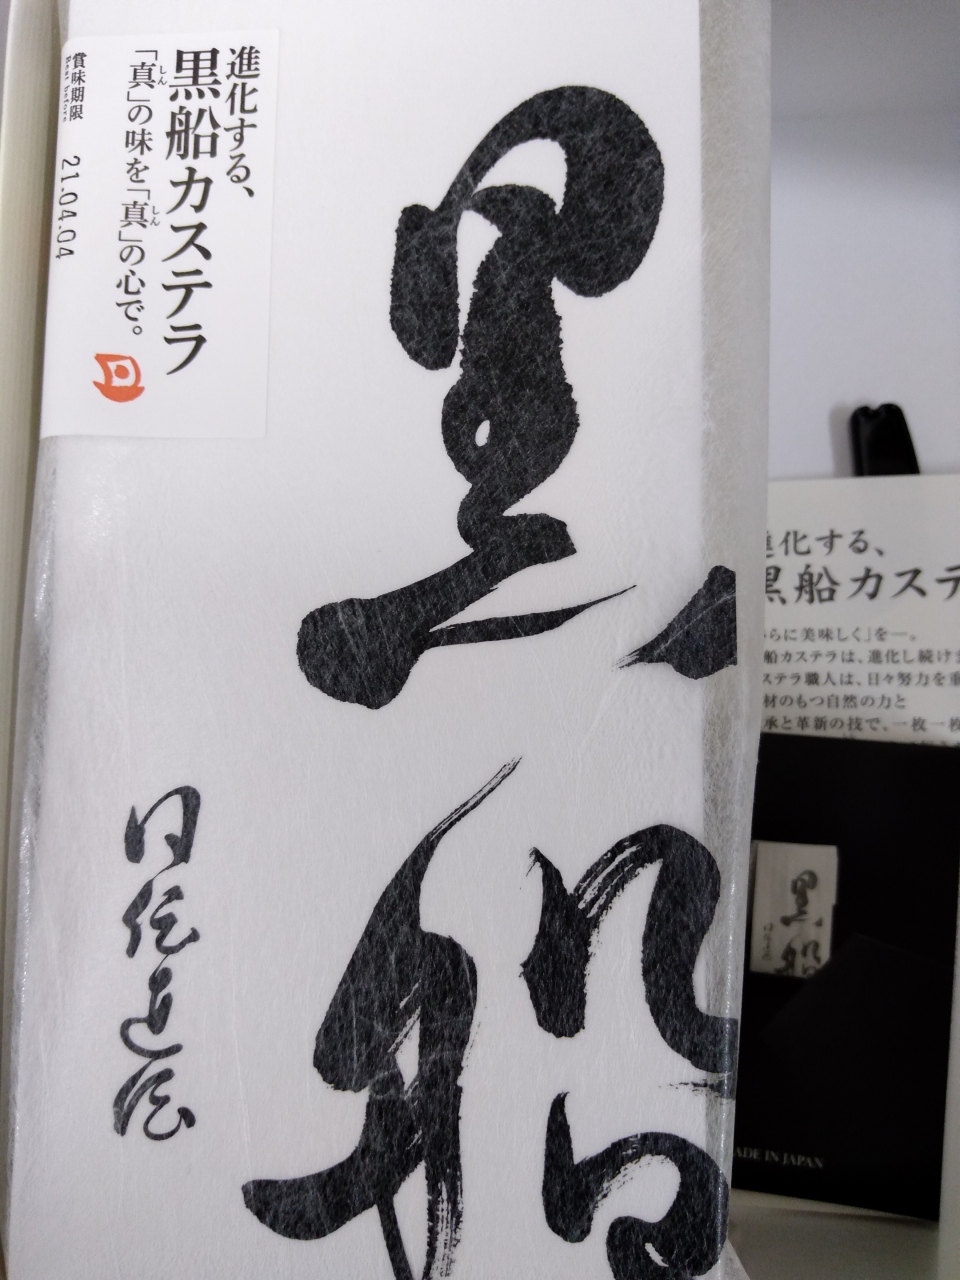 進化する、
黒船カステラ
「真」の味を「真」の心で。
しん
しん
賞味期限
Best before
21.04.04
黒船
日伝
進化する、
黒船カステ
らに美味しく」を―。
船カステラは、進化し続け
ステラ職人は、日々努力を重
材のもつ自然の力と
承と革新の技で、一枚一枚
黒船
ADE IN JAPAN